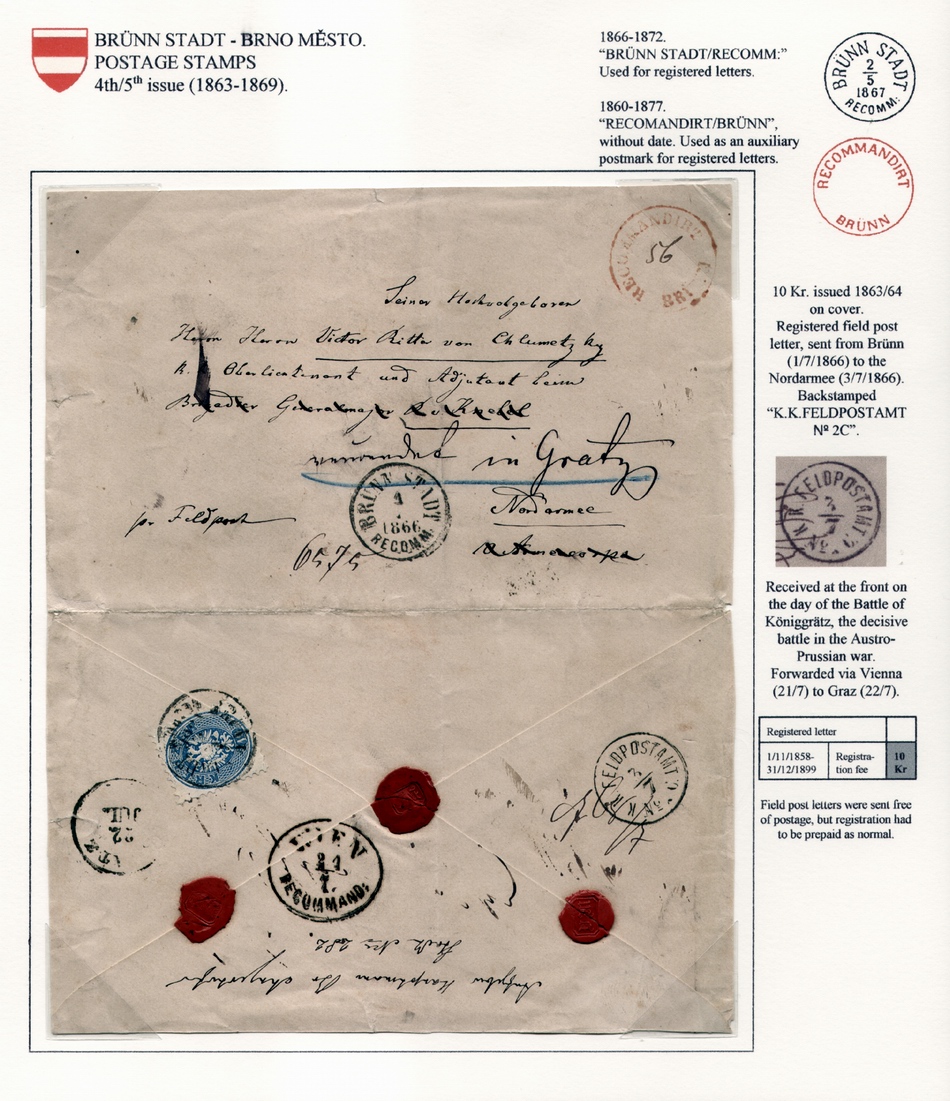 BRÜNN STADT - BRNO MĚSTO.
POSTAGE STAMPS
4th/5th issue (1863-1869).
1866-1872.
“BRÜNN STADT/RECOMM:”
Used for registered letters.
1860-1877.
“RECOMANDIRT/BRÜNN”,
without date. Used as an auxiliary
postmark for registered letters.
BRÜNN STADT
2
5
1867
RECOMM:
RECOMMANDIRT
BRÜNN
RECOMMANDIRT
56
BRÜ
Seiner Hochwohlgeboren
Herrn Herrn Victor Ritter von Chlumetzky
k. k. Oberlieutenant und Adjutant beim
Brigadier Generalmajor
in Gratz
BRÜNN STADT
1
1866
RECOMM:
Nordarmee
pr Feldpost
6575
10 Kr. issued 1863/64
on cover.
Registered field post
letter, sent from Brünn
(1/7/1866) to the
Nordarmee (3/7/1866).
Backstamped
“K.K.FELDPOSTAMT
Nº 2C”.
K.K. FELDPOSTAMT
3
7
No. C.
Received at the front on
the day of the Battle of
Königgrätz, the decisive
battle in the Austro-
Prussian war.
Forwarded via Vienna
(21/7) to Graz (22/7).
Registered letter
1/11/1858-
31/12/1899
Registra-
tion fee
10
Kr
Field post letters were sent free
of postage, but registration had
to be prepaid as normal.
K.K. FELDPOSTAMT
3
7
22
JUL
WIEN
21
7.
RECOMMAND: